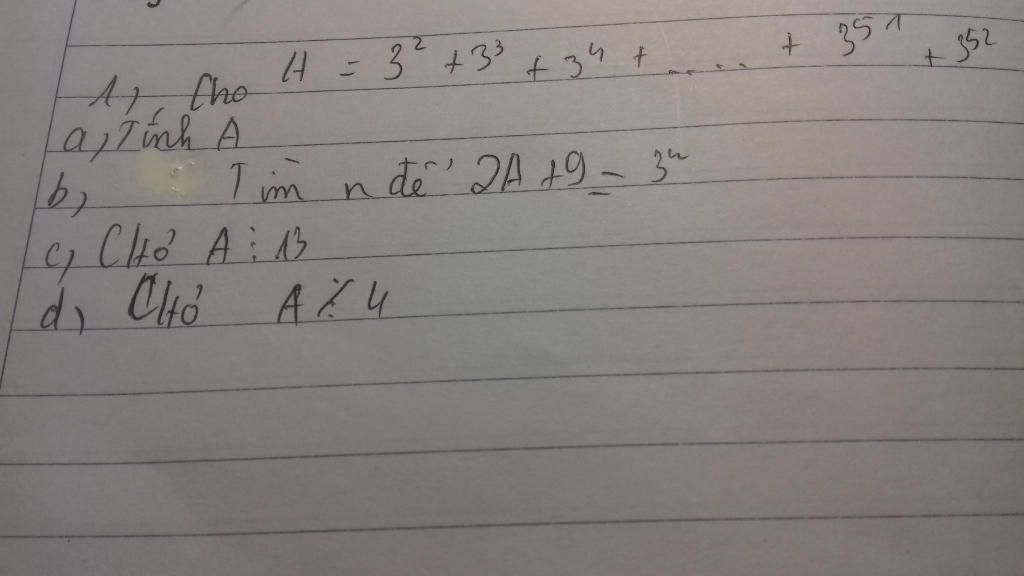 1, Cho A = 3² + 3³ + 3⁴ + ..... + 3⁵¹ + 3⁵²
a, Tính A
b, Tìm n để 2A + 9 = 3ⁿ
c, CHỏ A ⋮ 13
d, CHỏ A ⋮̸ 4